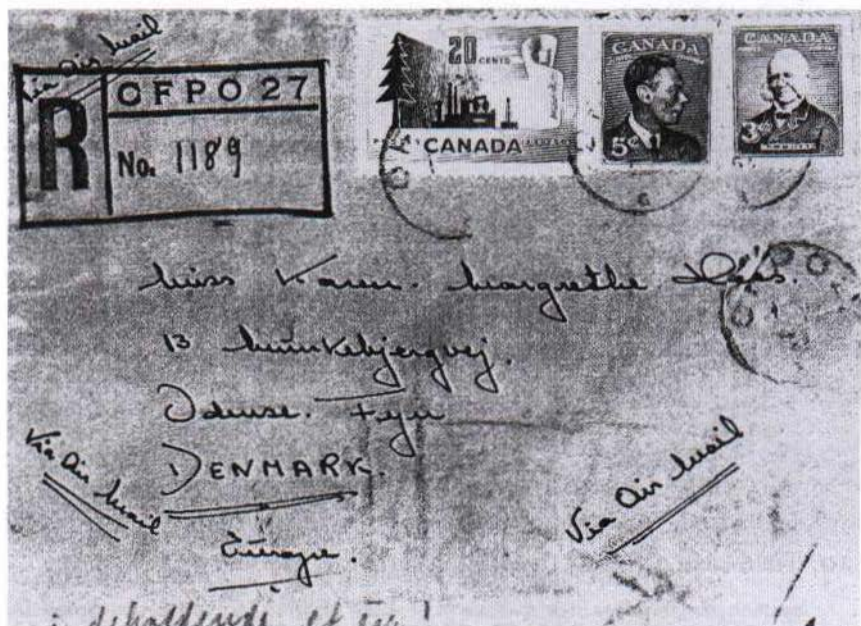 Via Air Mail
R
CFPO 27
No. 1189
20 CENTS
CANADA
CANADA
5¢
CANADA
3¢
Miss Karen. Margrethe
13 Munkebjergvej.
Odense. Fyn
DENMARK.
Europe.
Via Air Mail
Via Air Mail